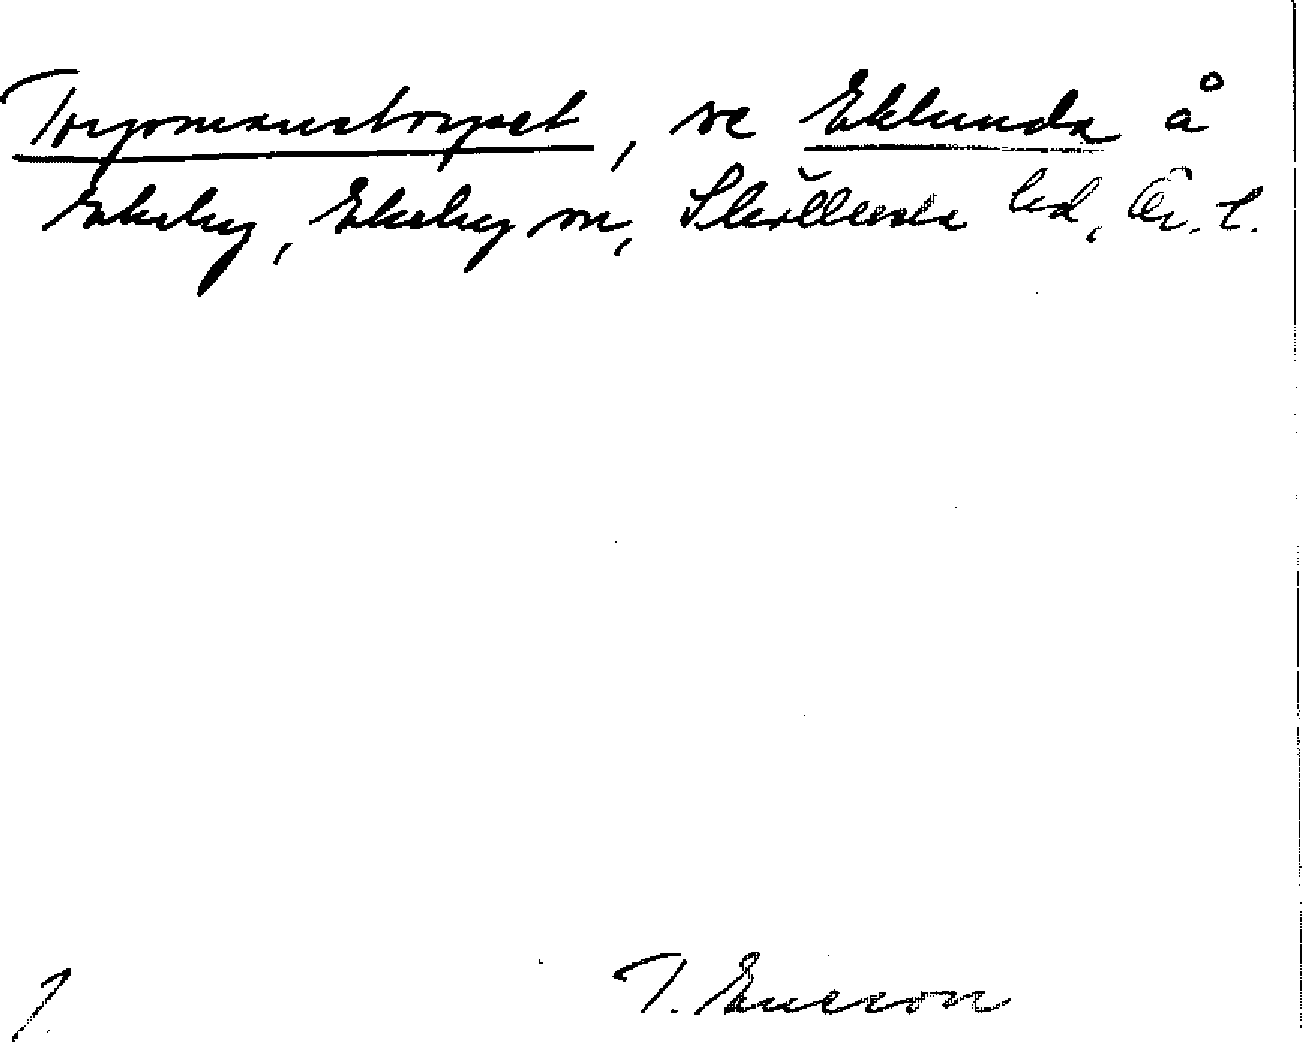 Torpmanstorpet, se Eklunda å
Ekeby, Ekeby sn, Sköllersta hd, Ör. l.
T. Ericson